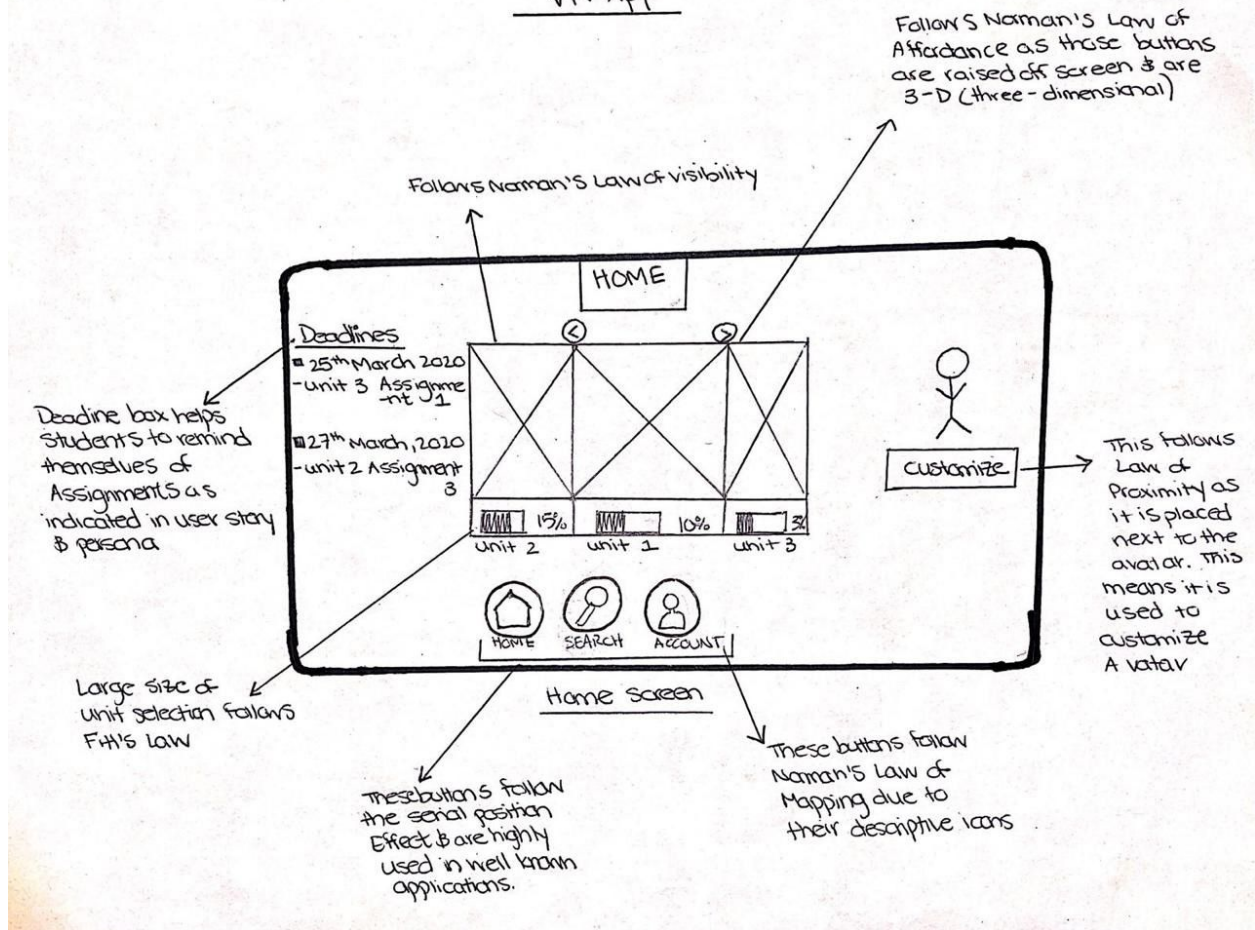 VR App
Follows Norman's Law of
Affordance as those buttons
are raised off screen & are
3-D (three-dimensional)
Follows Norman's Law of visibility
HOME
Deadlines
25th March 2020
-unit 3 Assignme
-nt 1
27th March, 2020
-unit 2 Assignment
3
<
>
15%
10%
3%
unit 2
unit 1
unit 3
customize
HOME
SEARCH
ACCOUNT
Home Screen
Deadline box helps
students to remind
themselves of
Assignments as
indicated in user story
& persona
This follows
Law of
Proximity as
it is placed
next to the
avatar. This
means it is
used to
customize
Avatar
Large size of
unit selection follows
Fitt's Law
These buttons follow
the serial position
Effect & are highly
used in well known
applications.
These buttons follow
Norman's Law of
Mapping due to
their descriptive icons